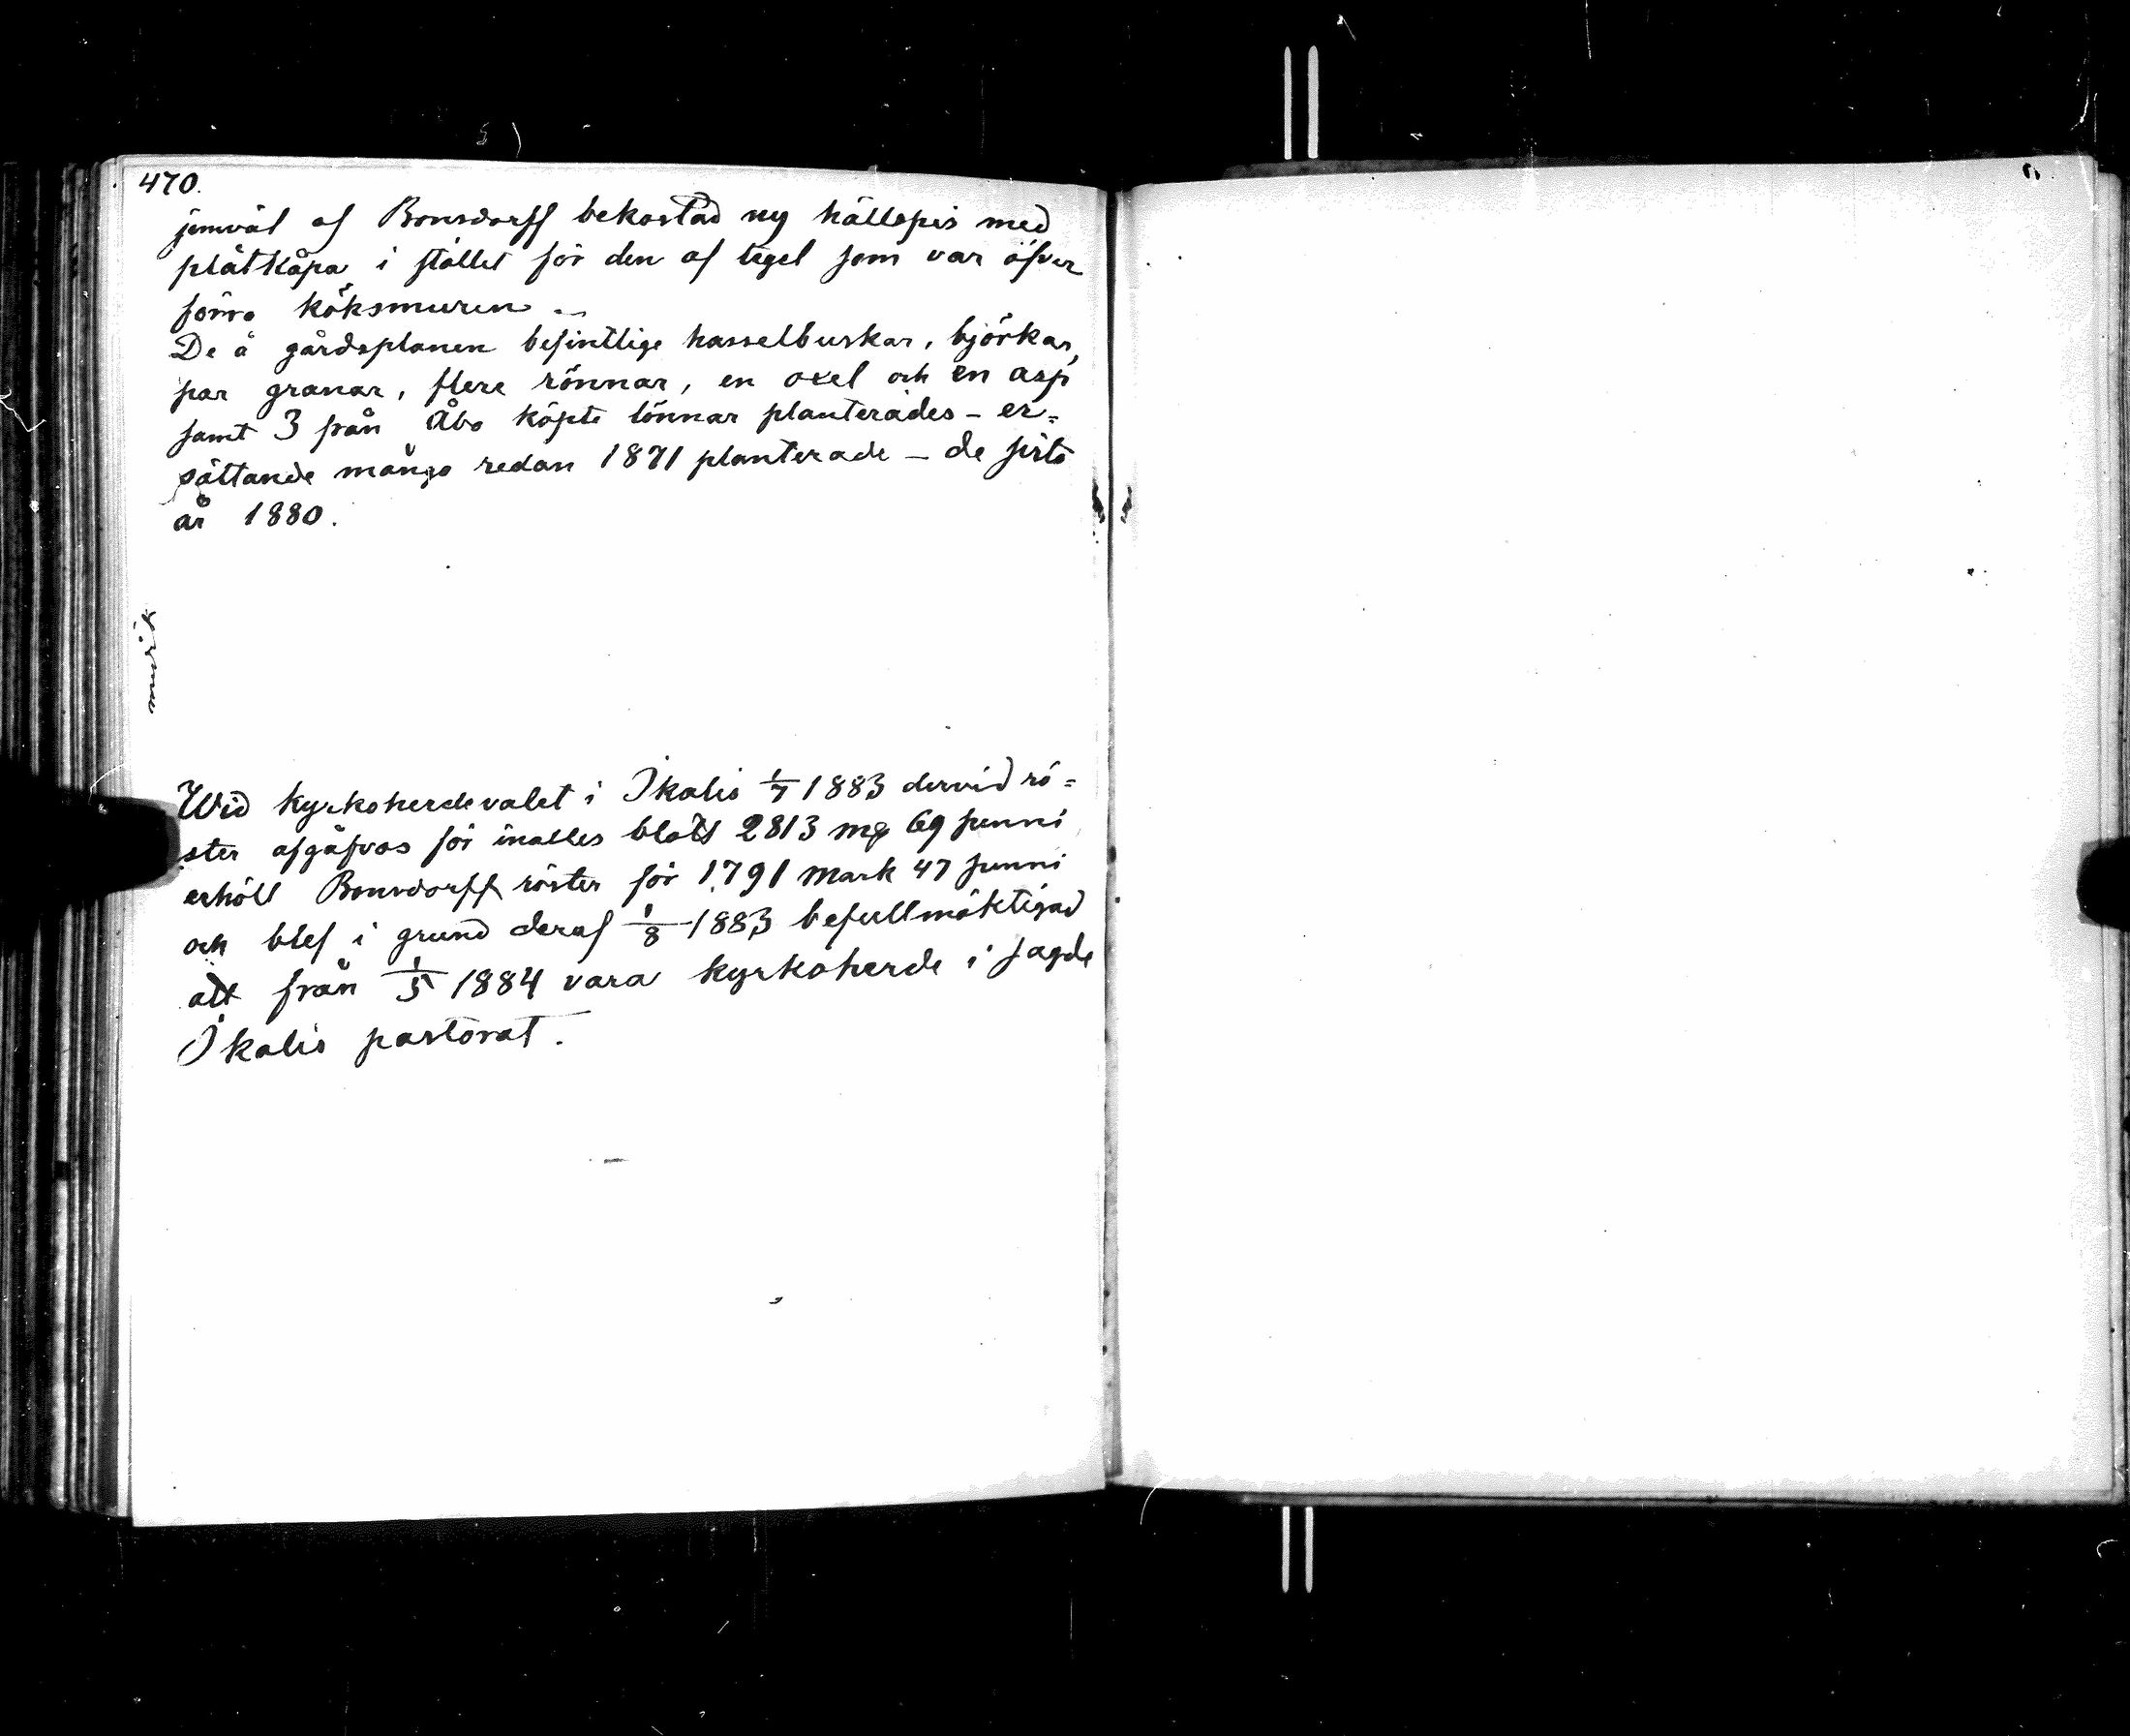 470.
jemväl af Bonsdorff bekostad ny hällspis med
plåtkåpa i stället för den af tegel som var öfver
förra köksmuren
De å gårdsplanen befintlige hasselbuskar, björkar,
par granar, flere rönnar, en oxel och en asp
samt 3 från Åbo köpte lönnar planterades - er=
sättande många redan 1871 planterade - de sista
år 1880.
musik
Wid kyrkoherdevalet i Ikalis 1/7 1883 dervid rö=
ster afgåfvos för inalles blott 2813 mk 69 penni
erhöll Bonsdorff röster för 1791 mark 47 penni
och blef i grund deraf 1/8 1883 befullmäktigad
att från 1/5 1884 vara kyrkoherde i sagde
Ikalis pastorat.